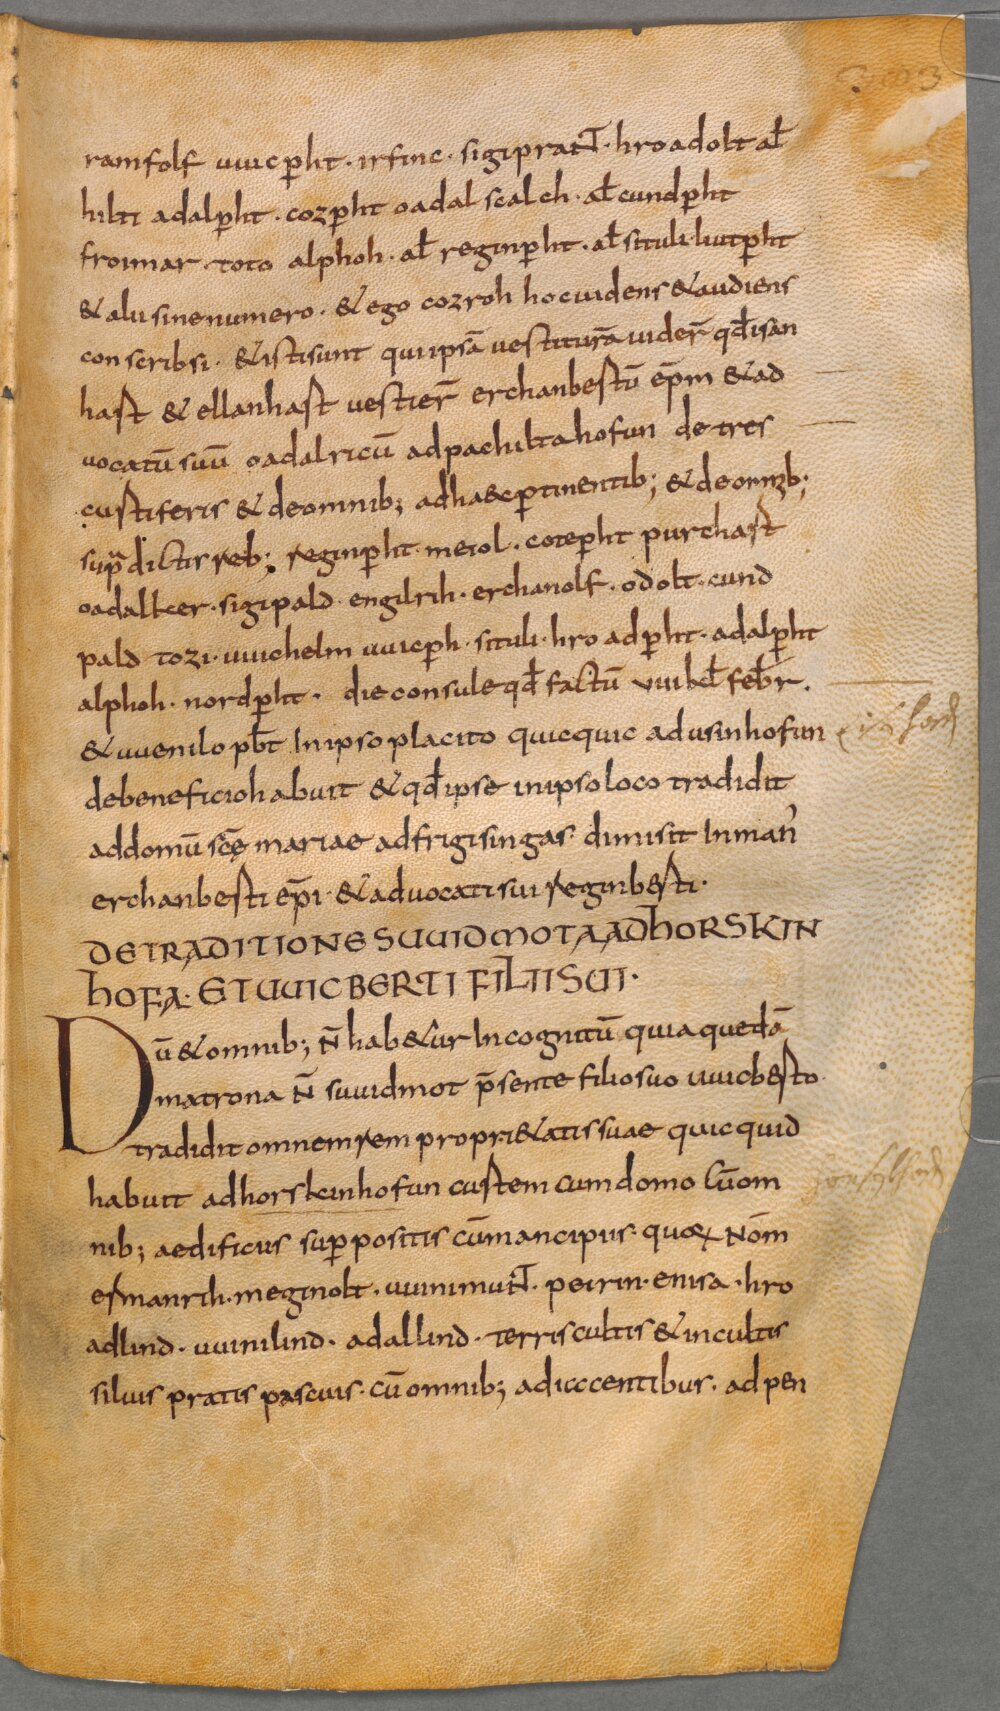 ramfolf uuicp̄ht · irfinc · sigipraNT · hroadolt al̄
hilti adalp̄ht · cozp̄ht oadal scalch · al̄ cundp̄ht
froimar · toto alphoh · al̄ reginp̄ht · al̄ situli · liutp̄ht
& alii sine numero · & ego cozroh hoc uidens & audiens
conscribsi · & isti sunt qui ipsā uestiturā uider̄ qd̄ isan
hast & ellanhast uestier̄ erchanbestū ep̄m & ad
uocatū suū oadalricū ad pachiltahofun de tres
custiferis & de omnib; ad haec ꝑtinentib; & de omīb;
sup̄dictis reb; reginp̄ht · meiol · cotep̄ht purchast
oadalker · sigipald · engilrih · erchanolf · odolt · cund
pald tozi · uuichelm uuicp̄h · situli · hroadp̄ht · adalp̄ht
alphoh · nordp̄ht · die consule qd̄ factū VIII kl̄ feb̄r ·
& uuenilo pb̄t In ipso placito quicquic ad usinhofun
de beneficio habuit & qd̄ ipse in ipso loco tradidit
ad domū scę̄ mariae ad frigisingas dimisit In man̄
erchanbesti ep̄i · & aduocati sui reginbesti ·
DE TRADITIONE SUUIDMOTA AD HORSKIN
HOFA · ET UUICBERTI FILII SUI ·
Dū & omnib; N̄ hab&ur Incognitū quia quedā
matrona N̄ suuidmot p̄sente filio suo uuicbesto
tradidit omnem rem propri&atis suae quicquid
habuit ad horskinhofun custem cum domo cū om
nib; aedificiis suꝑpositis cū mancipiis · quoꝝ Nōm
es manrih · meginolt · uuinimuNT · peirin · enisa · hro
adlind · uuinilind · adallind · terris cultis & incultis
siluis pratis pascuis · cū omnib; adiccentibus · ad pen